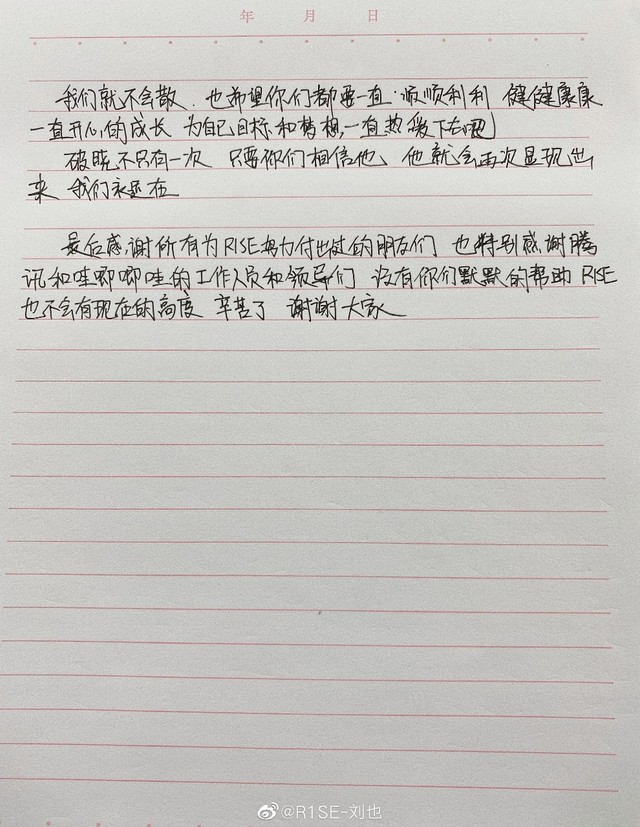 年 月 日
我们就不会散 也希望你们都要一直 顺顺利利 健健康康
一直开心的成长 为自己目标和梦想,一直热爱下去吧
破晓不只有一次 只要你们相信他、他就会再次显现出
来 我们永远在
最后感谢所有为RISE努力付出过的朋友们 也特别感谢腾
讯和哇唧唧哇的工作人员和领导们 没有你们默默的帮助 RISE
也不会有现在的高度 辛苦了 谢谢大家
@R1SE-刘也